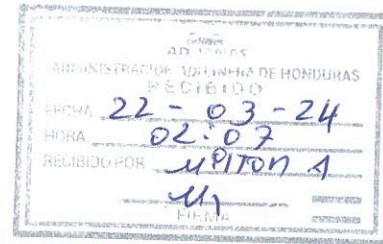 ADUANAS
ADMINISTRACION ADUANERA DE HONDURAS
RECIBIDO
FECHA 22 - 03 - 24
HORA 02:07
RECIBIDO POR
FIRMA